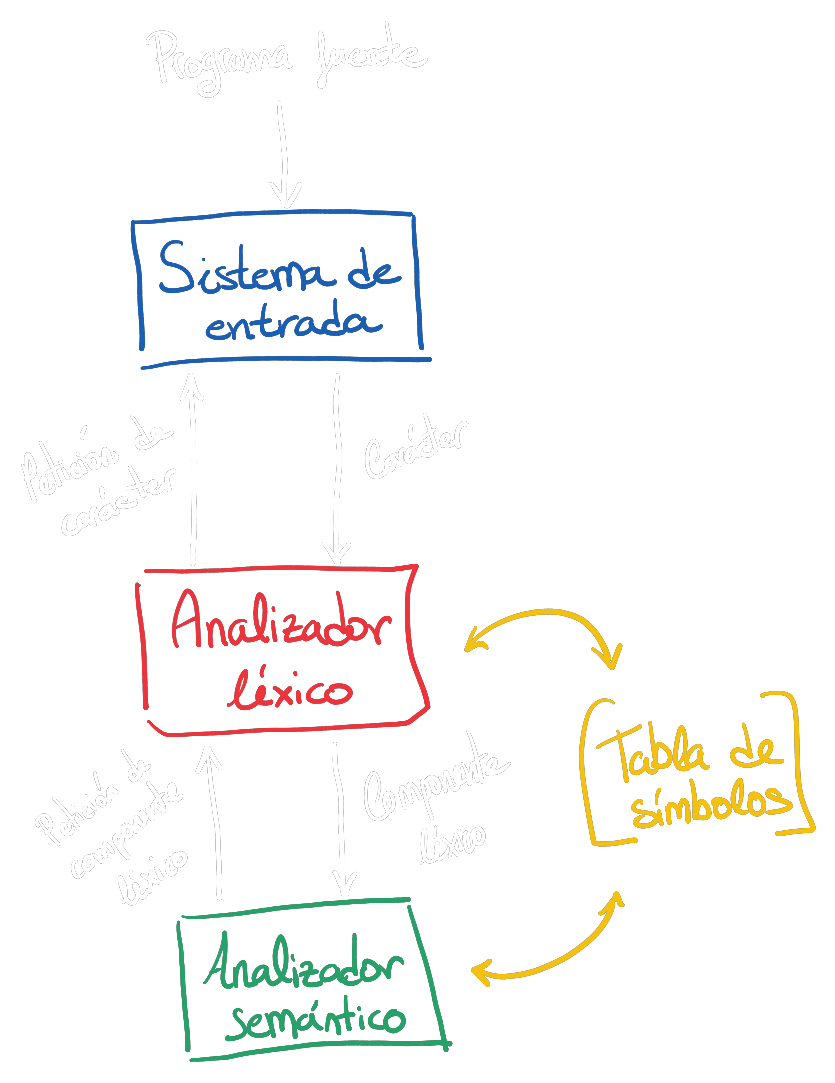 Programa fuente
Sistema de
entrada
Petición de
carácter
Carácter
Analizador
léxico
Tabla de
símbolos
Petición de
componente
léxico
Componente
léxico
Analizador
semántico